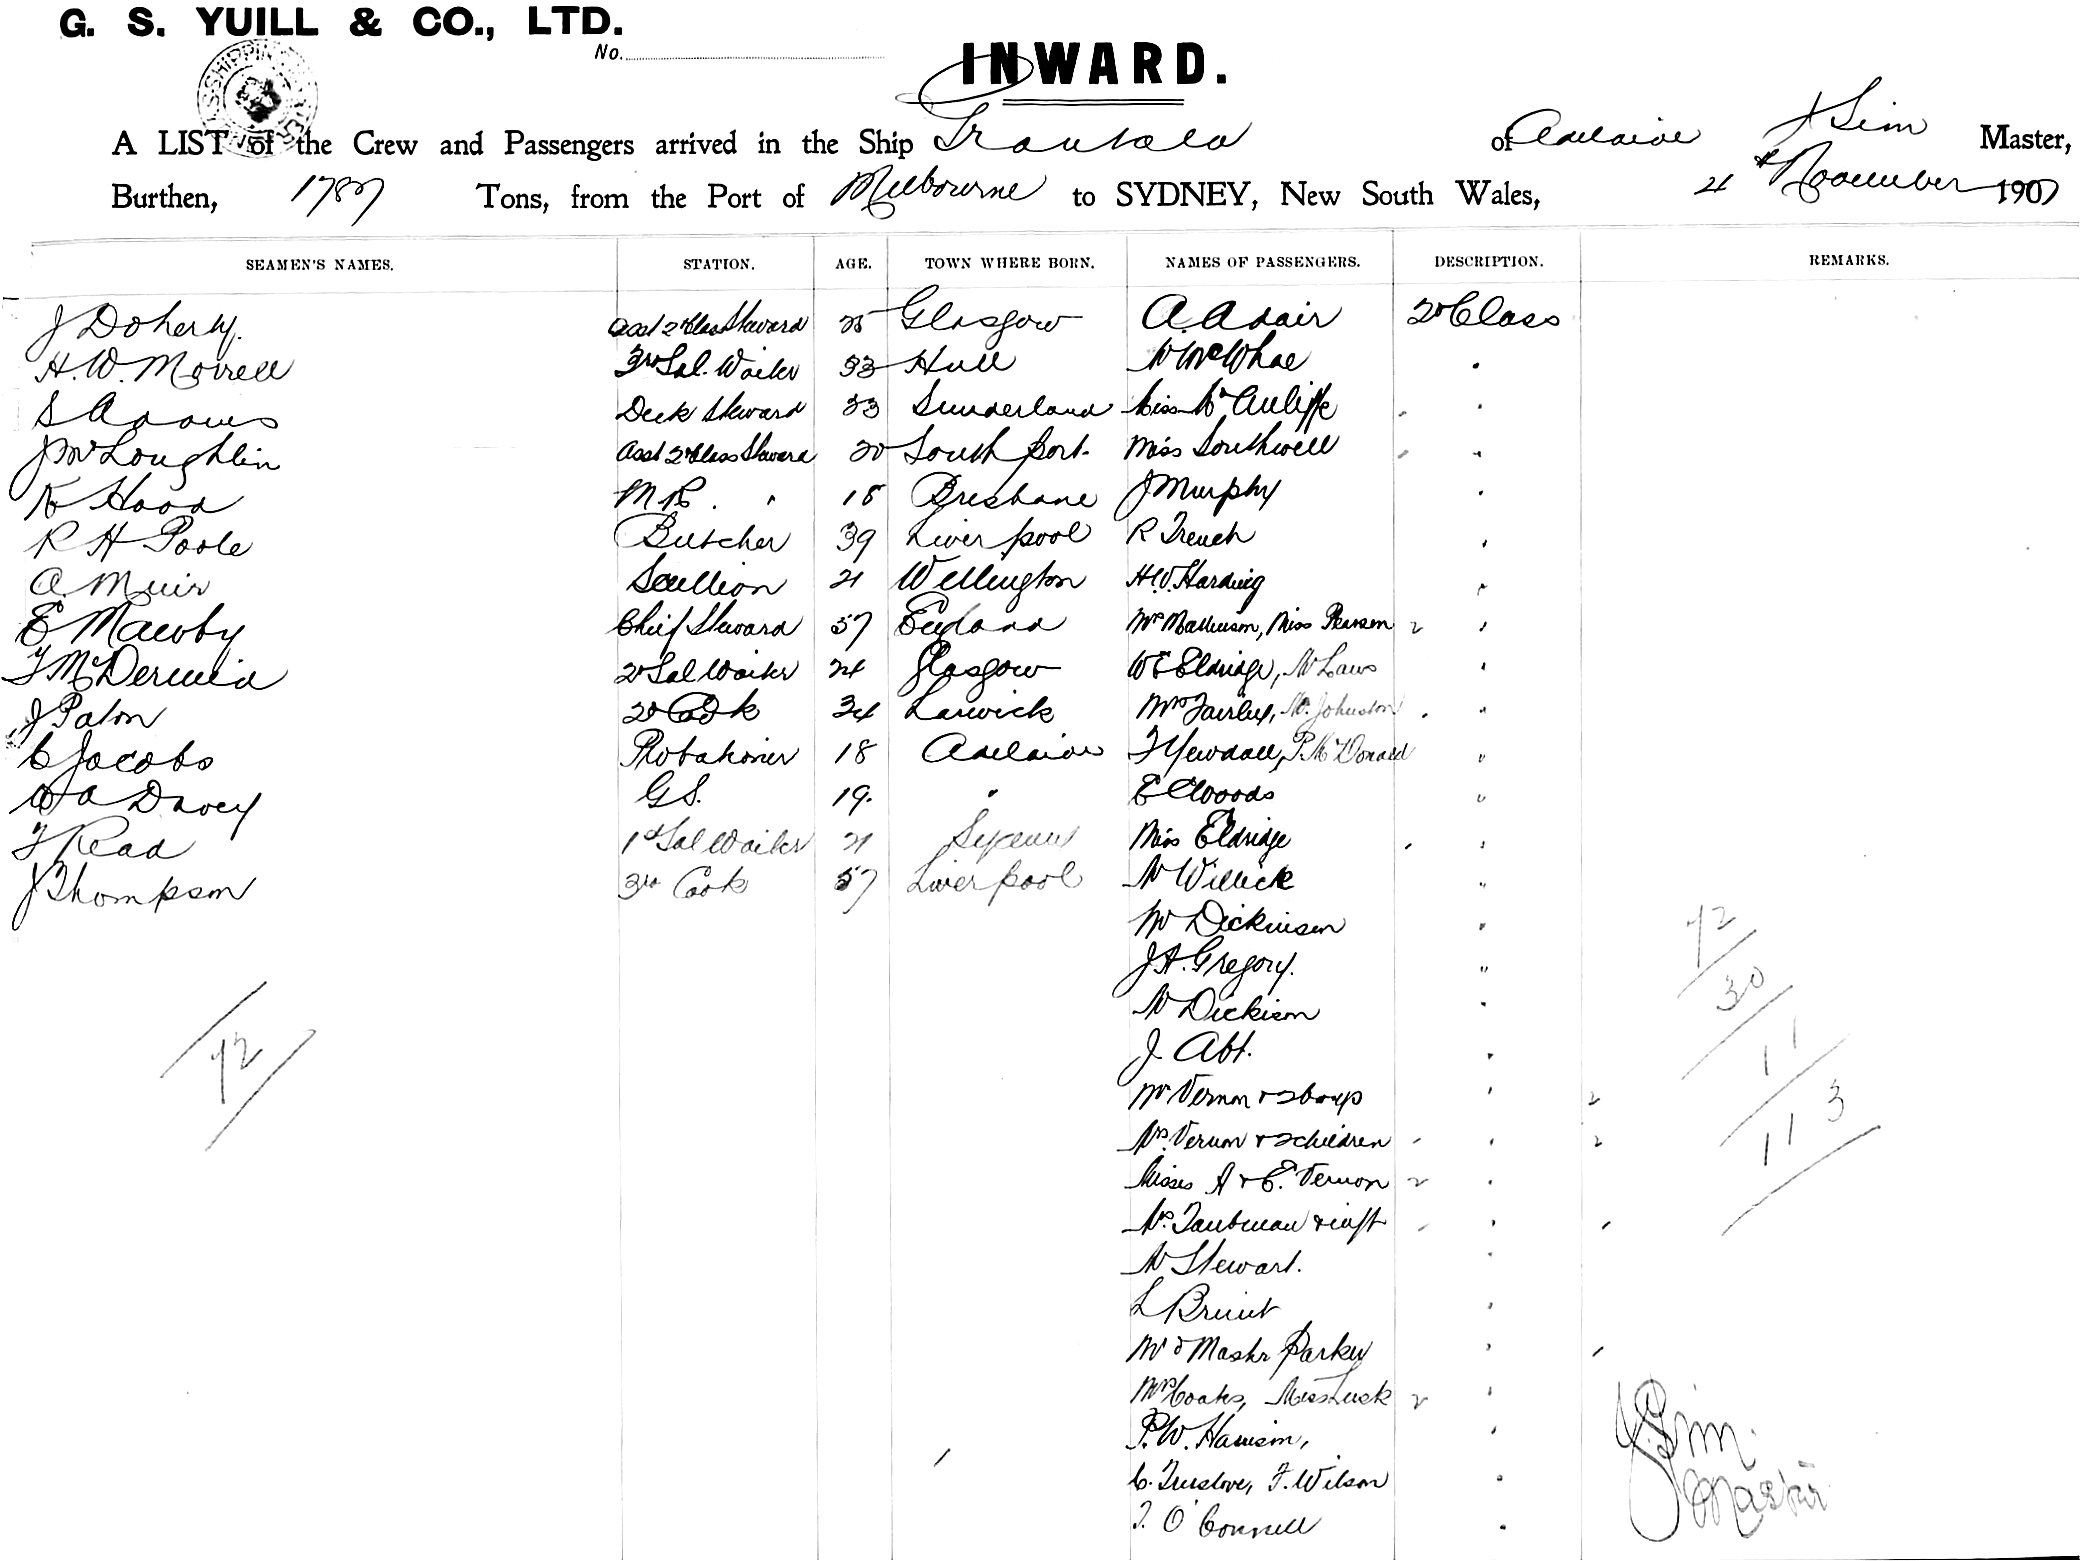 G. S. YUILL & CO., LTD.
No.
INWARD.
A LIST of the Crew and Passengers arrived in the Ship Grantala of Adelaide J Sim Master,
Burthen, 1787 Tons, from the Port of Melbourne to SYDNEY, New South Wales, 4th November 1907
SEAMEN'S NAMES. STATION. AGE. TOWN WHERE BORN. NAMES OF PASSENGERS. DESCRIPTION. REMARKS.
J Doherty. Asst 2d Class Steward 25 Glasgow A. Adair 2d Class
H. W. Morrell 3rd Sal. Waiter 33 Hull Mr McWhae "
S Adams Deck Steward 33 Sunderland Miss McAuliffe "
J McLoughlin Asst 2d Class Steward 20 South port. Miss Southwell "
K Hood M R. " 18 Brisbane J Murphy "
R H Poole Butcher 39 Liverpool R Trench "
A. Muir Scullion 21 Wellington H. W. Harding "
E Mawby Chief Steward 57 England Mrs Mathewson, Miss Pearson 2 "
F McDermid 2d Sal Waiter 24 Glasgow W E Eldridge, Mr Laws "
J Paton 2d Cook 34 Lerwick Mrs Fairley, Mr. Johnston "
C Jacobs Probationer 18 Adelaide F Yewdall, P. McDonald "
W A Davey G.S. 19. " E C Woods "
F Read 1st Sal Waiter 21 Sydney Miss Eldridge "
J Thompson 3rd Cook 57 Liverpool Mr Willick "
Mr Dickinson "
J. A. Gregory. "
Mr Dickison "
J. Abt. "
Mr Vernon & 2 boys " 2
Mrs. Vernon & 2 children " 2
Misses A & E. Vernon 2 "
Mrs. Taubman & inft "
Mr Stewart. "
L Bruut "
Mr & Mastr Parker "
Mrs Coates, Miss Lusk 2 "
P. W. Harrison, "
C. Truslove, F. Wilson "
T. O'Connell "
72
72
30
11
113
J. Sim.
Master